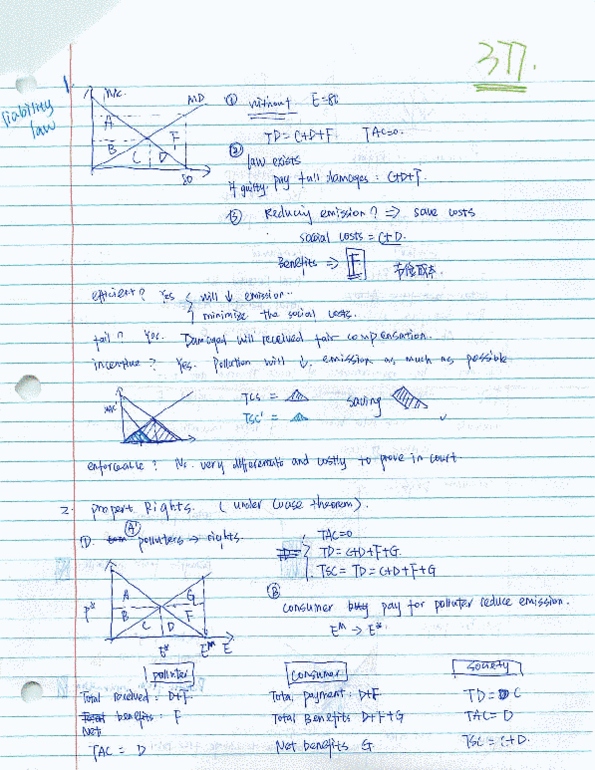 377.
1.
liability
law
MAC
MD
A
B
C
D
F
80
① without E=80
TD = C+D+F TAC=0.
②
law exists
if guilty. pay full damages = C+D+F.
③ Reducing emission? ⇒ save costs
social costs = C+D.
Benefits ⇒ F
efficient? Yes { will ↓ emission..
minimize the social costs.
fair? Yes. Damaged will received fair compensation.
incentive? Yes. Pollution will ↓ emission as much as possible
MAC'
TCS =
TSC' =
saving
enforceable? No. very differents and costly to prove in court.
2. Propert Rights. (under Coase theorem).
①. A' polluters → rights.
TAC=0
TD = C+D+F+G.
TSC = TD = C+D+F+G
A
B
C
D
F
G
P*
E*
E^M
E
B
consumer pay for polluter reduce emission.
E^M → E*.
polluter
consumer
society
Total received: D+F.
Total payment: D+F
TD = C
benefits: F
Net
Total Benefits D+F+G
TAC = D
TAC = D
Net benefits G
TSC = C+D.